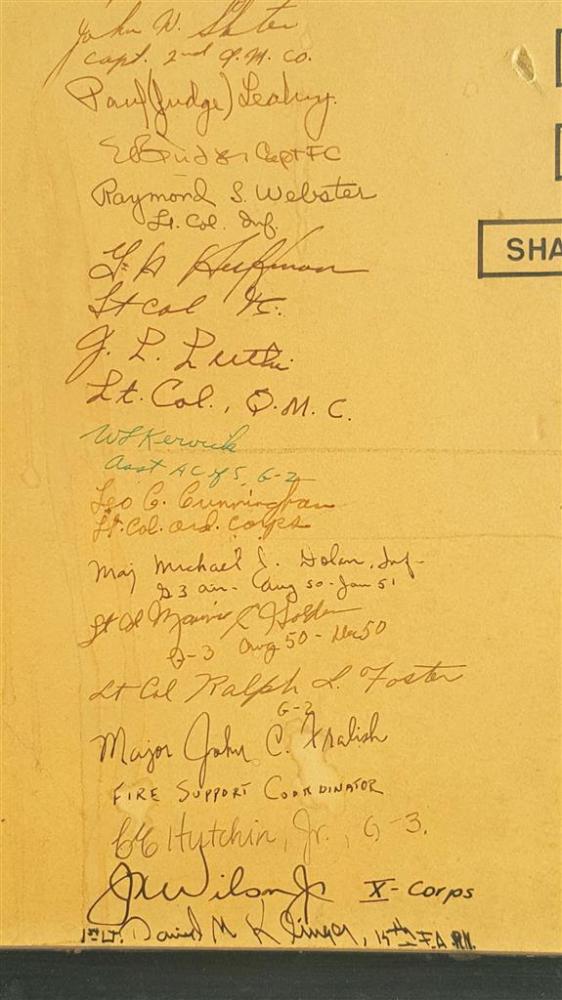 John W.
Capt. 2nd Q.M. Co.
Paul (Judge) Leahy.
Capt FC
Raymond S. Webster
Lt. Col. Inf.
SHA
G. A. Huffman
Lt Col
J. L. Luthi
Lt. Col., Q.M.C.
WLKerwick
Asst AC of S, G-2
Leo G. Cunningham
Lt. Col. Ord. Corps
Maj Michael J. Dolan, Inf-
G3 air- Aug 50-Jan 51
Lt Col Holden
G-3 Aug 50 - Dec 50
Lt Col Ralph L. Foster
G-2
Major John C. Fralish
FIRE SUPPORT COORDINATOR
CE Hutchin, Jr., G-3.
JX Wilson Jr X-Corps
1st LT. David M Klinger, 15th F.A. BN.